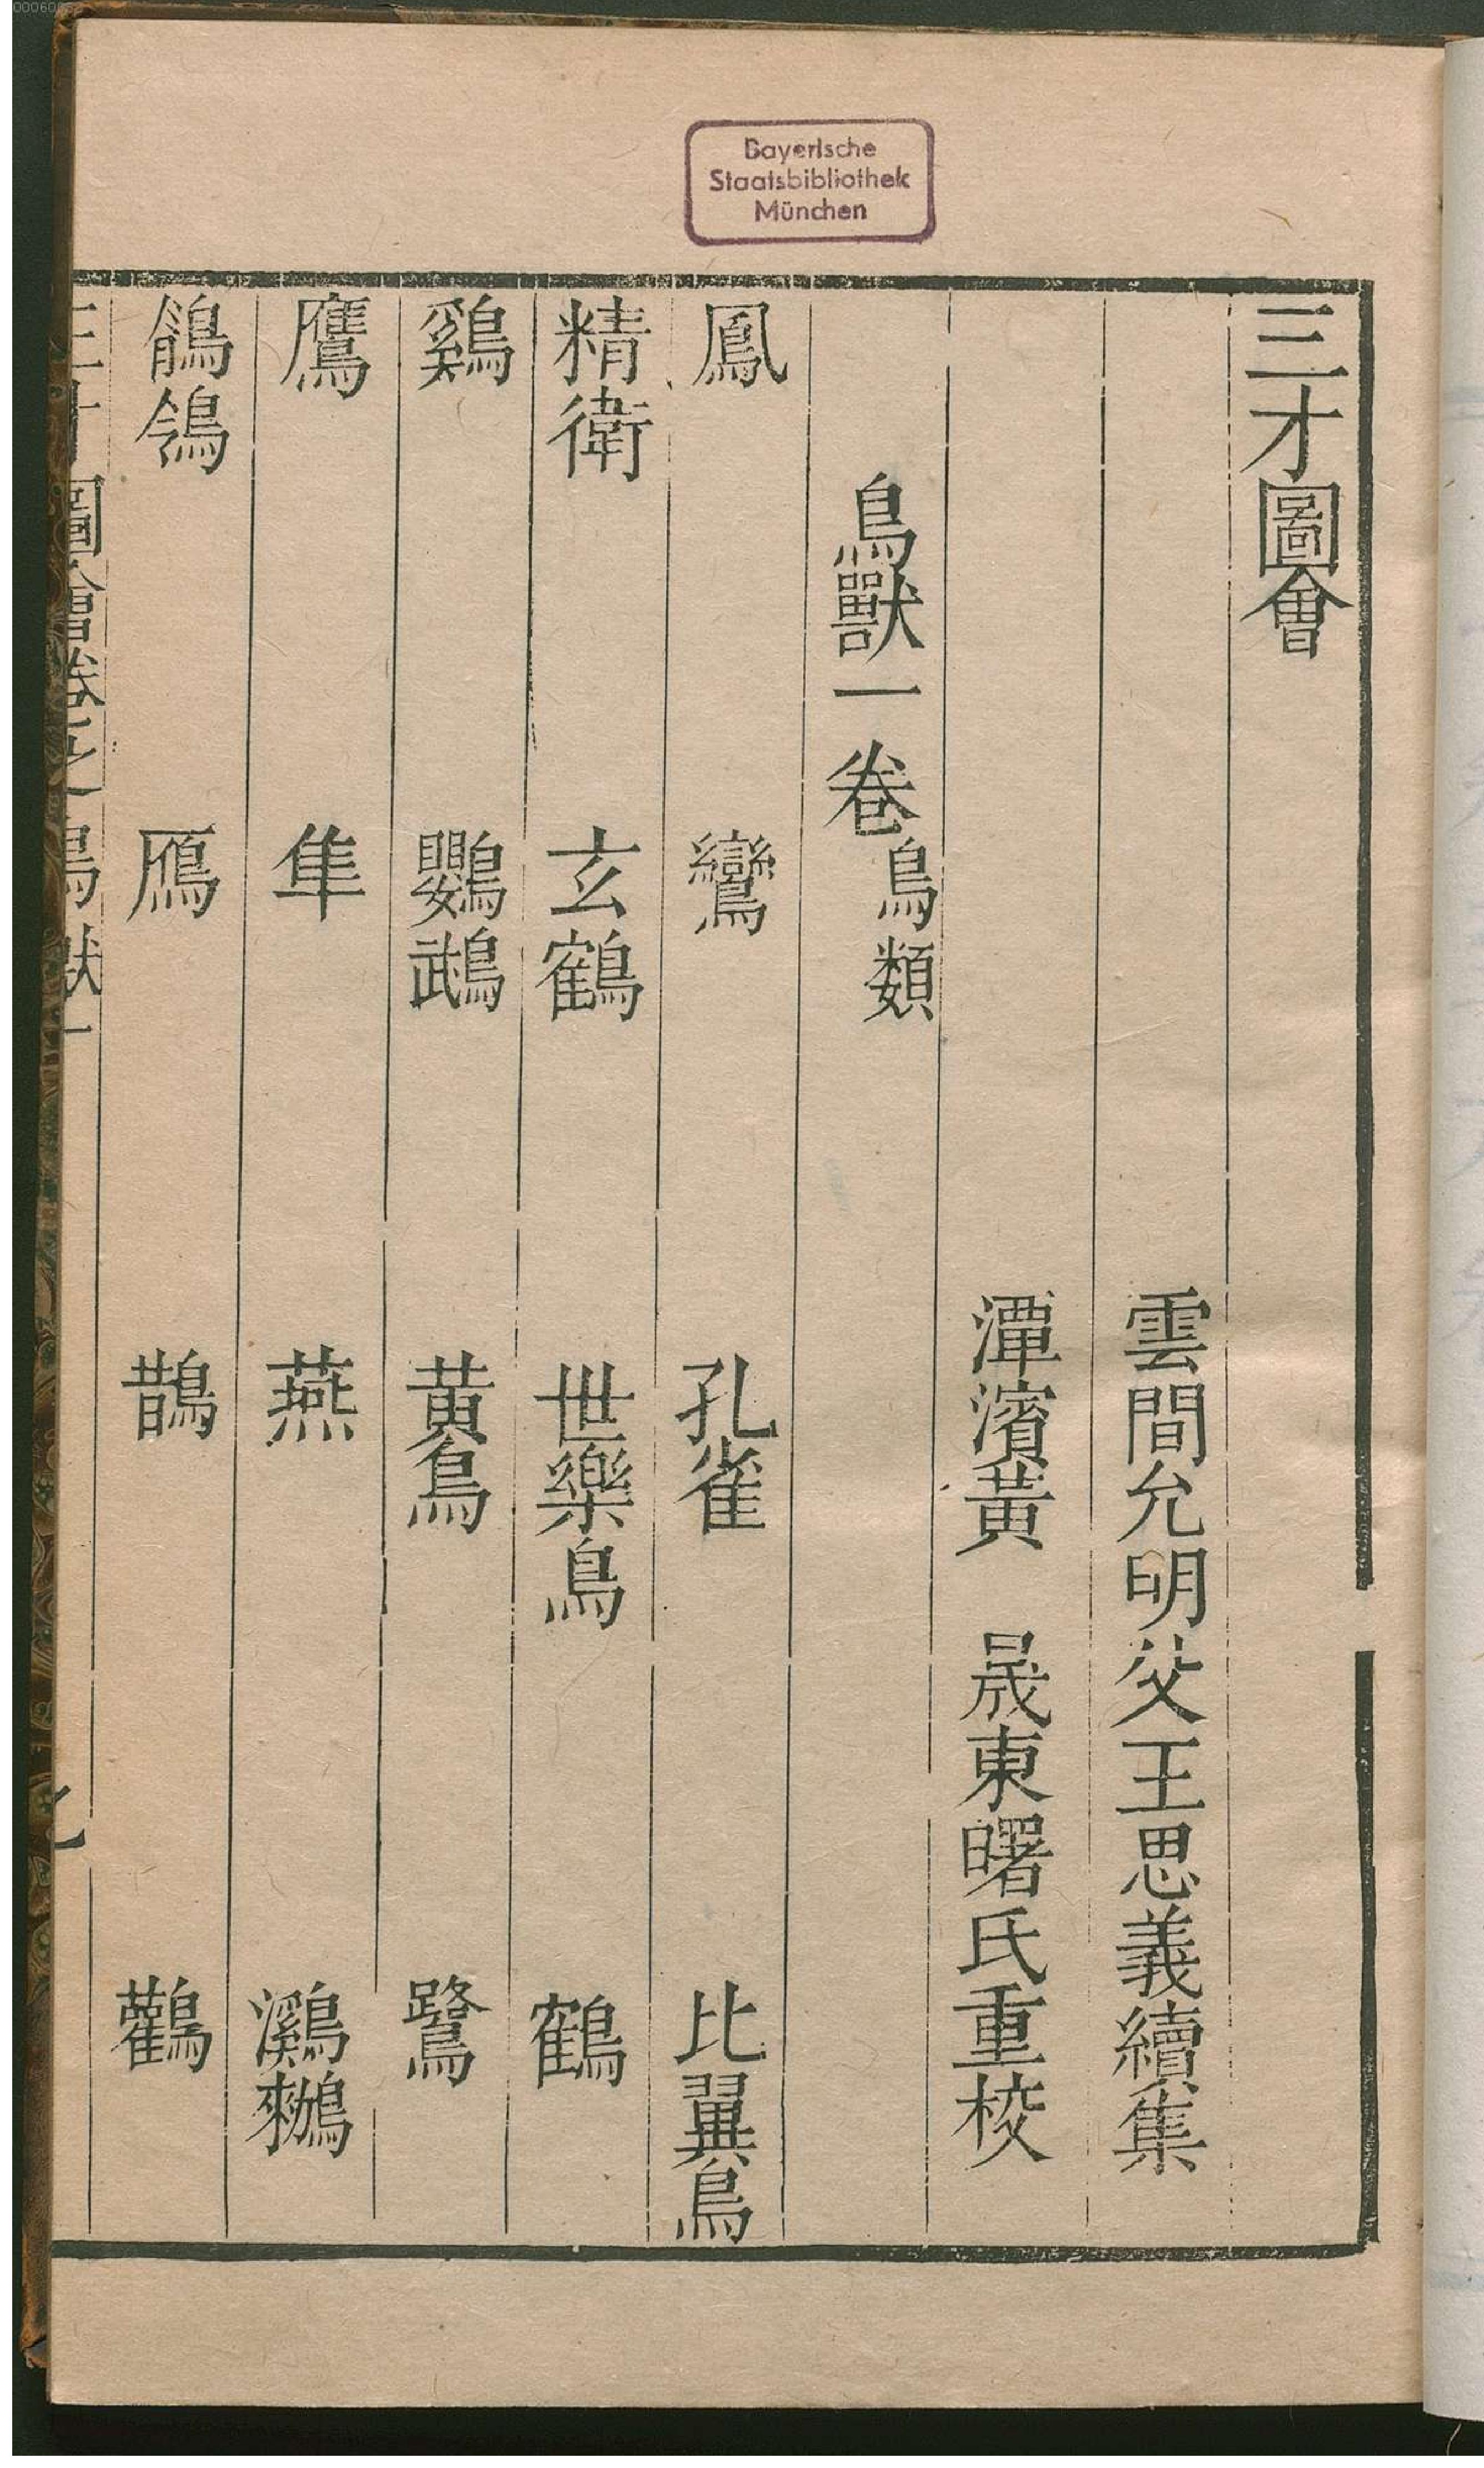 Bayerische
Staatsbibliothek
München
三才圖會
雲間允明父王思義續集
潭濱黃 晟東曙氏重校
鳥獸一卷鳥類
鳳 鸞 孔雀 比翼鳥
精衛 玄鶴 世樂鳥 鶴
鷄 鸚鵡 黃鳥 鷺
鷹 隼 燕 鸂鶒
鶺鴒 鴈 鵲 鸛
三才圖會卷之鳥獸一